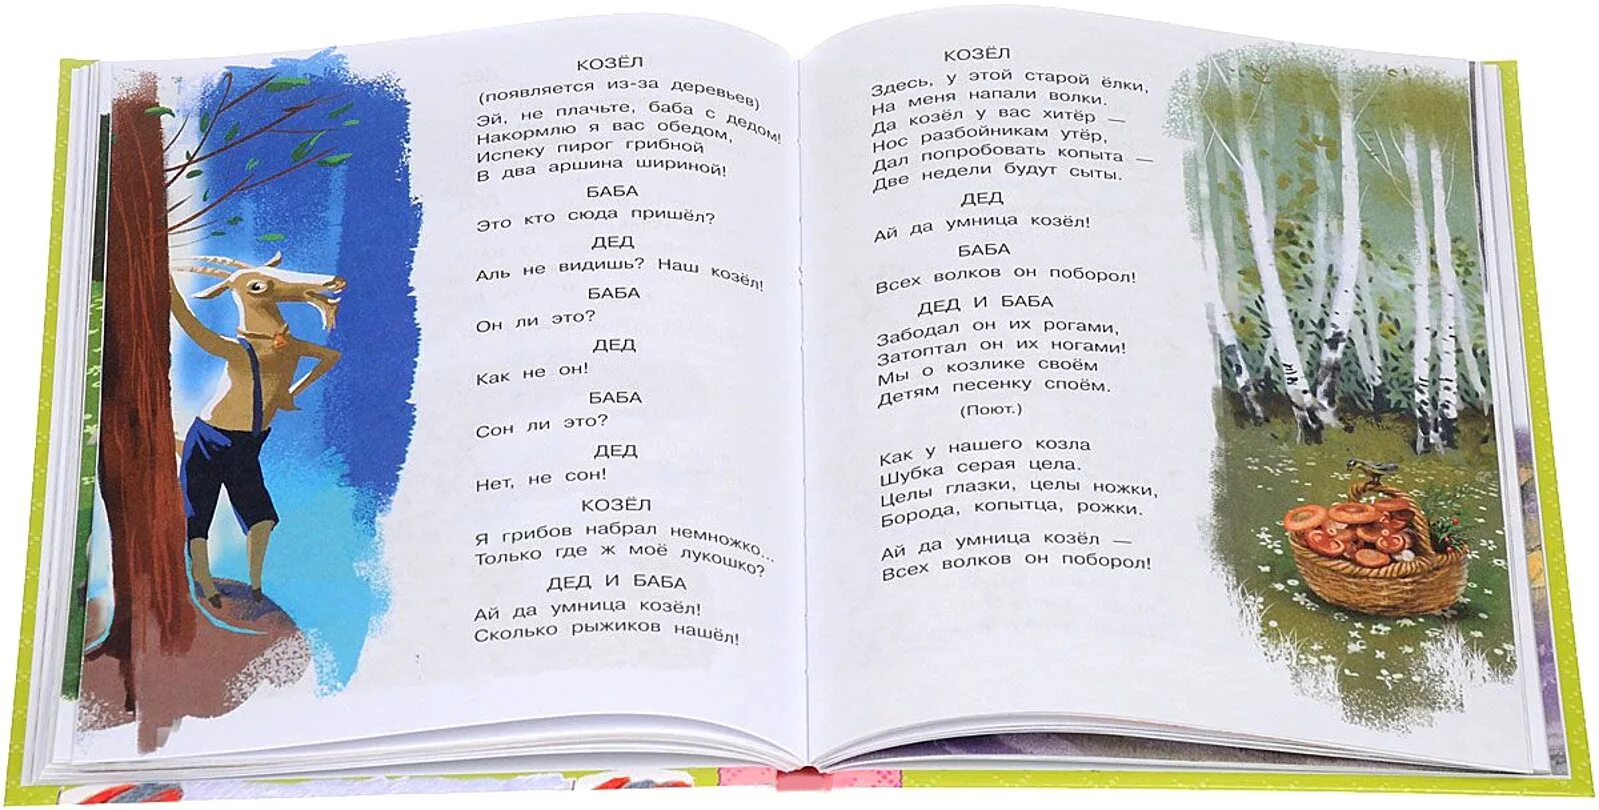 КОЗЁЛ
(появляется из-за деревьев)
Эй, не плачьте, баба с дедом!
Накормлю я вас обедом,
Испеку пирог грибной
В два аршина шириной!
БАБА
Это кто сюда пришёл?
ДЕД
Аль не видишь? Наш козёл!
БАБА
Он ли это?
ДЕД
Как не он!
БАБА
Сон ли это?
ДЕД
Нет, не сон!
КОЗЁЛ
Я грибов набрал немножко...
Только где ж моё лукошко?
ДЕД И БАБА
Ай да умница козёл!
Сколько рыжиков нашёл!
КОЗЁЛ
Здесь, у этой старой ёлки,
На меня напали волки.
Да козёл у вас хитёр —
Нос разбойникам утёр,
Дал попробовать копыта —
Две недели будут сыты.
ДЕД
Ай да умница козёл!
БАБА
Всех волков он поборол!
ДЕД И БАБА
Забодал он их рогами,
Затоптал он их ногами!
Мы о козлике своём
Детям песенку споём.
(Поют.)
Как у нашего козла
Шубка серая цела.
Целы глазки, целы ножки,
Борода, копытца, рожки.
Ай да умница козёл —
Всех волков он поборол!